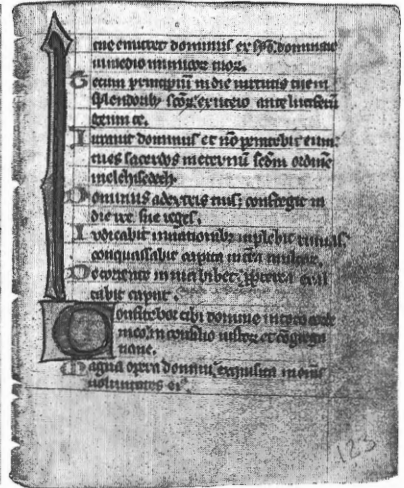 tue emittet dominus ex syō. dominare
in medio inimicoꝝ tuoꝝ.
Tecum principiū in die uirtutis tue in
splendoribꝫ scōꝝ. ex utero ante luciferū
genui te.
Iurauit dominus et nō penitebit eum:
tu es sacerdos in eternū scdm ordinē
melchisedech.
Dominus a dextris tuis: confregit in
die ire sue reges.
Iudicabit in nationibꝫ inplebit ruinas.
conquassabit capita in t̄ra multoꝝ.
De torrente in uia bibet: ꝓpterea exal
tabit caput.
Confitebor tibi domine in toto corde
meo: in consilio iustoꝝ et cōgrega
tione.
Magna opera domini: exquisita in om̄s
uoluntates eiꝰ.
123